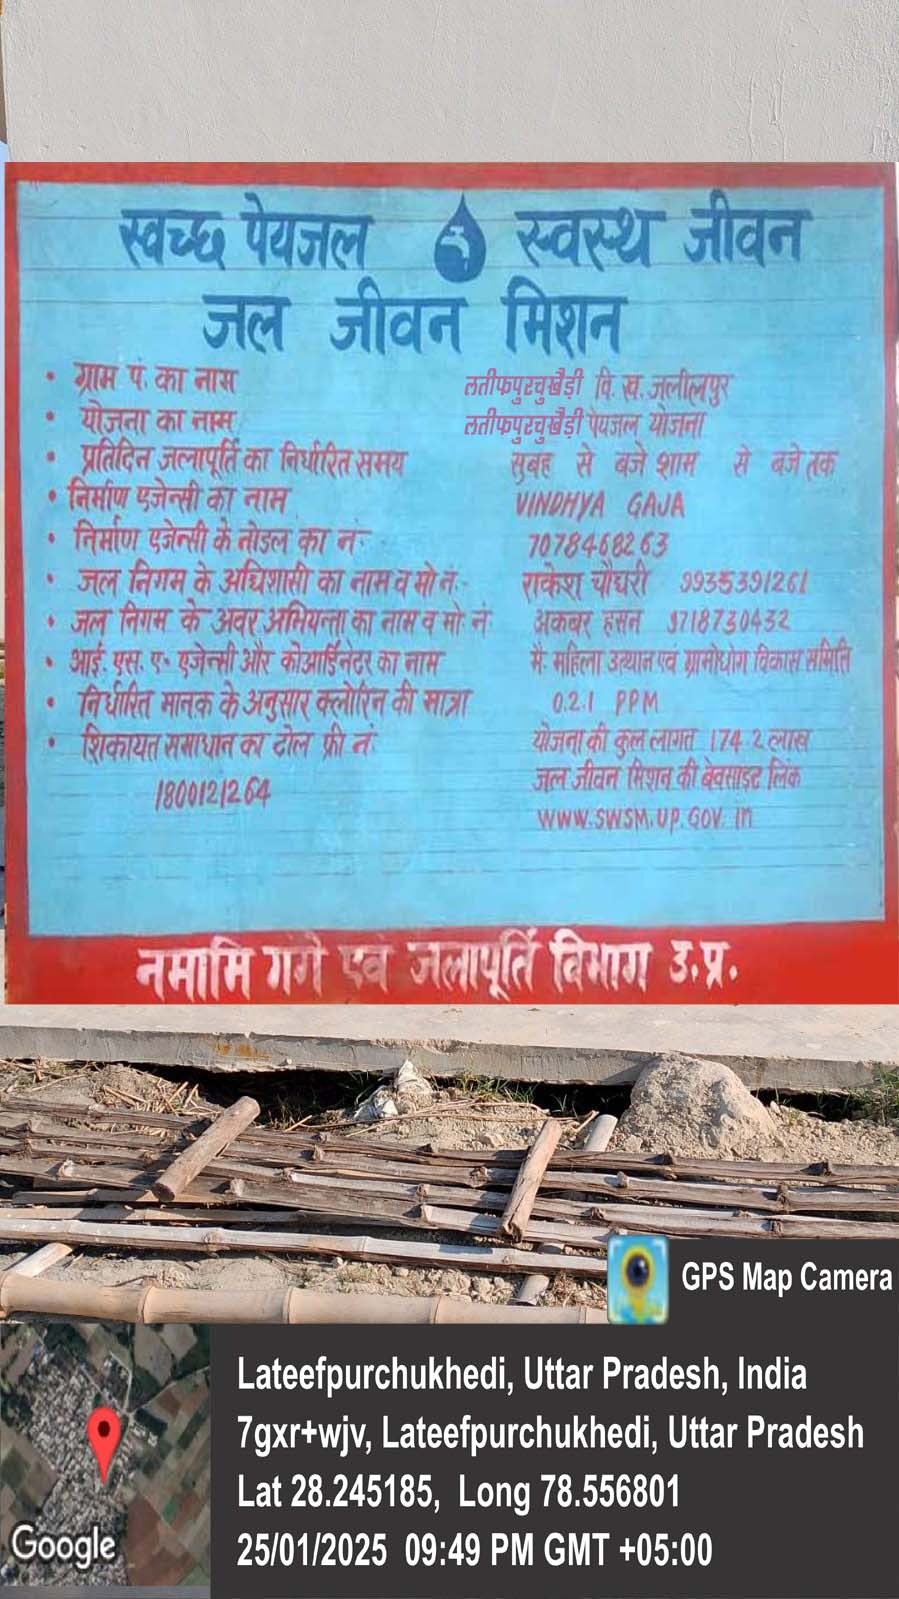 स्वच्छ पेयजल स्वस्थ जीवन
जल जीवन मिशन
• ग्राम पं. का नाम लतीफपुरचुखैड़ी वि. ख. जलीलपुर
• योजना का नाम लतीफपुरचुखैड़ी पेयजल योजना
• प्रतिदिन जलापूर्ति का निर्धारित समय सुबह से बजे शाम से बजे तक
• निर्माण एजेन्सी का नाम VINDHYA GAJA
• निर्माण एजेन्सी के नोडल का नं- 7078468263
• जल निगम के अधिशासी का नाम व मो नं:- राकेश चौधरी 9935391261
• जल निगम के अवर अभियन्ता का नाम व मो. नं: अकबर हसन 9718730432
• आई. एस. ए. एजेन्सी और कोआर्डिनेटर का नाम मै. महिला उत्थान एवं ग्रामोधोग विकास समिति
• निर्धारित मानक के अनुसार क्लोरिन की मात्रा 0.2.1 PPM
• शिकायत समाधान का टोल फ्री नं. योजना की कुल लागत 174.2 लाख
जल जीवन मिशन की बेवसाइट लिंक
1800121264
WWW.SWSM.UP.GOV.in
नमामि गंगे एवं जलापूर्ति विभाग उ.प्र.
GPS Map Camera
Lateefpurchukhedi, Uttar Pradesh, India
7gxr+wjv, Lateefpurchukhedi, Uttar Pradesh
Lat 28.245185, Long 78.556801
25/01/2025 09:49 PM GMT +05:00
Google